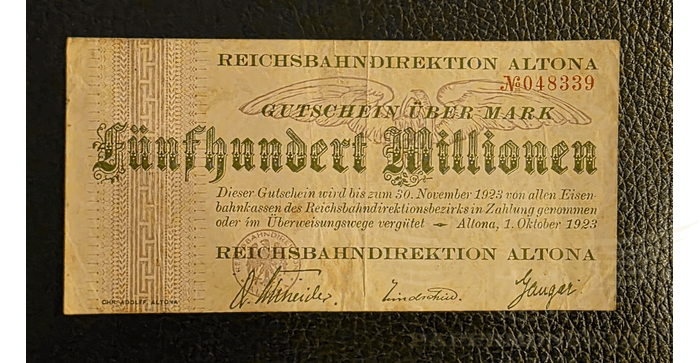 REICHSBAHNDIREKTION ALTONA
№048339
GUTSCHEIN ÜBER MARK
Fünfhundert Millionen
Dieser Gutschein wird bis zum 30. November 1923 von allen Eisen-
bahnkassen des Reichsbahndirektionsbezirks in Zahlung genommen
oder im Überweisungswege vergütet — Altona, 1. Oktober 1923
REICHSBAHNDIREKTION ALTONA
CHR. ADOLFF, ALTONA